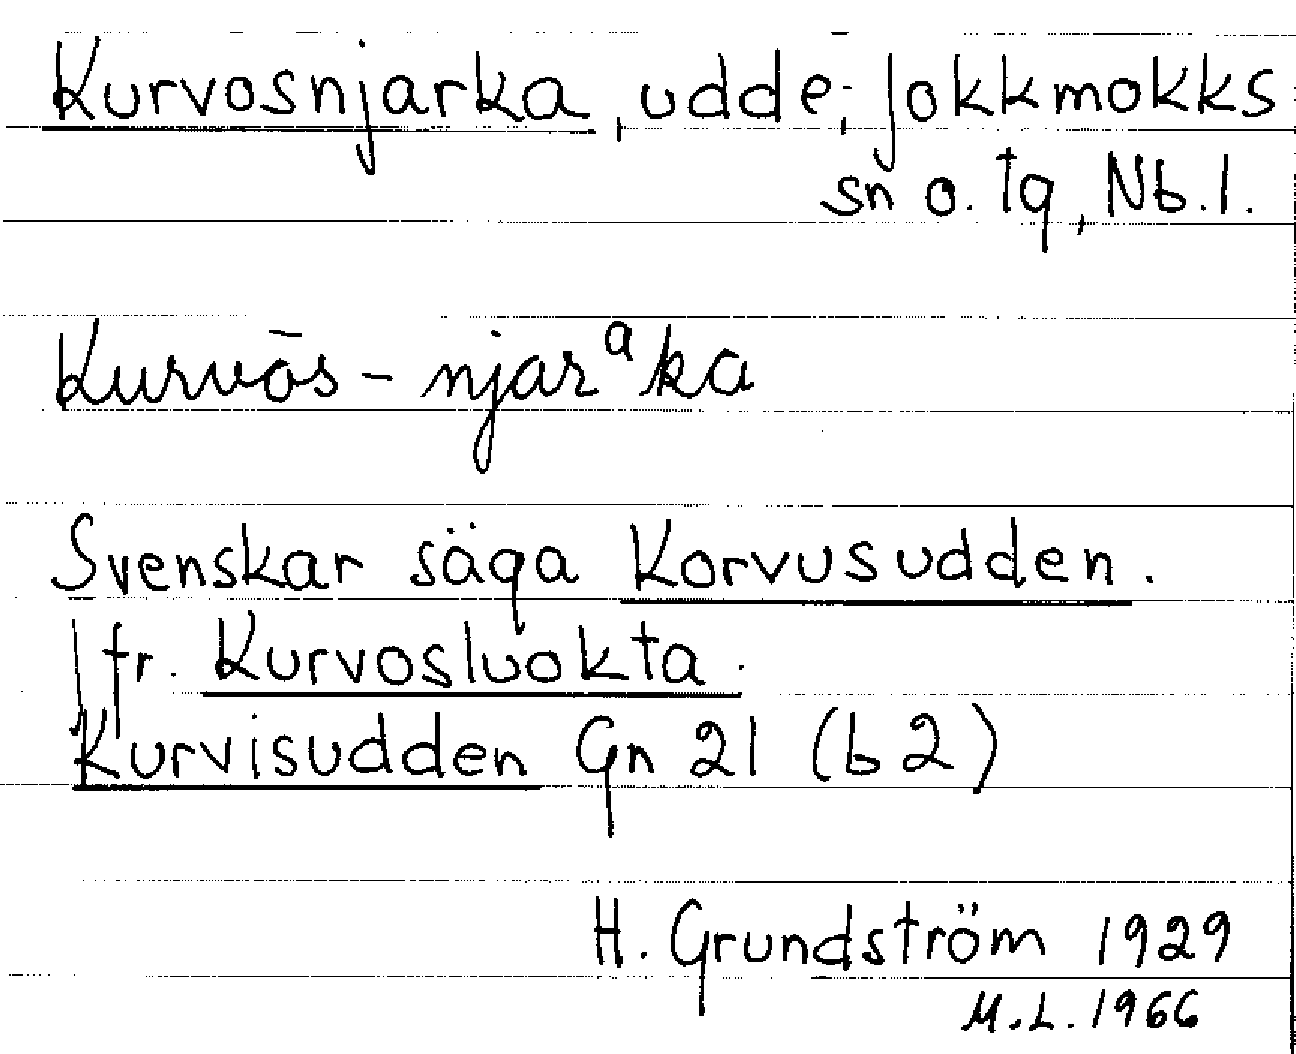 Kurvosnjarka, udde, Jokkmokks
sn o. tg, Nb. l.
Kurvōs - njarᵃka
Svenskar säga Korvusudden.
Jfr. Kurvosluokta.
Kurvisudden Gn 21 (b2)
H. Grundström 1929
M.L. 1966